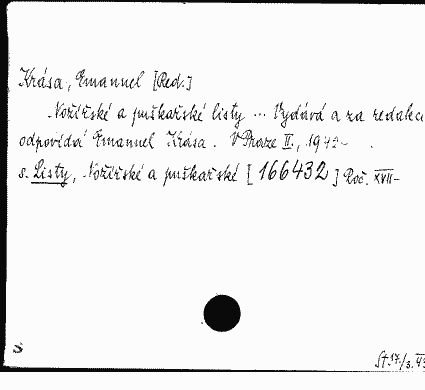 Krása, Emanuel [Red.]
Nožířské a puškařské listy ... Vydává a za redakci
odpovídá Emanuel Krása. V Praze II., 194
s. Listy, Nožířské a puškařské [166432] Roč. XVII-
S
St.17./3.